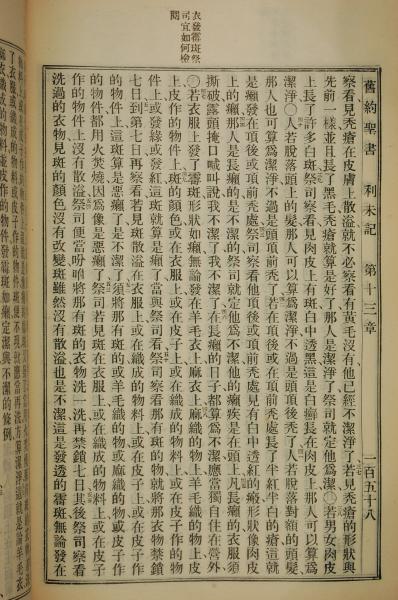 衣發霉斑祭
司宜如何檢
閱
舊約聖書 利未記 第十三章 一百五十八
察看見禿瘡在皮膚上散溢就不必察看有黃毛沒有他已經不潔淨了若見禿瘡的形狀與
先前一樣並且長了黑毛禿瘡就算是好了那人是潔淨了祭司就定他爲潔○若男女肉皮
上長了許多白斑祭司察看見肉皮上有斑白中透黑這是白癬長在肉皮上那人可以算爲
潔淨○人若脫落頭上的髮那人可以算爲潔淨不過是頭頂後禿了人若脫落對額的頭髮
那人也可算爲潔淨不過是頭頂前禿了若在頂後或在頂前禿處長了半紅半白的瘡這就
是癩發在頂後或頂前禿處祭司察看他頂後或頂前禿處見有白中透紅的癍形狀像肉皮
上的癩那人是長癩的是不潔的祭司就定他爲不潔他的癩疾是在頭上凡長癩的衣服須
撕破露頭掩口喊叫說我不潔了我不潔了在長癩的日子都算爲不潔應當獨自住在營外
○若衣服上發了霉斑形狀如癩無論發在羊毛衣上麻衣上麻織的物上羊毛織的物上皮子
上皮作的物件上斑的顏色或在衣服上或在皮子上或在織成的物料上或在皮子作的物
件上或發綠或發紅這斑就算是癩了當與祭司看祭司察看那有斑的物就將那衣物禁鎖
七日到第七日再察看若見斑散溢在衣服上或在織成的物料上或在皮子上或在皮子作
的物件上這斑算是惡癩了是不潔了須將那有斑的或羊毛織的物或麻織的物或皮子作
的物件都用火焚燒因爲像是惡癩了祭司若見斑在衣服上或在織成的物料上或在皮子
作的物件上沒有散溢祭司便當吩咐將那有斑的衣物洗一洗再禁鎖七日其後祭司察看
洗過的衣物見斑的顏色沒有改變斑雖然沒有散溢也是不潔這是發透的霉斑無論發在